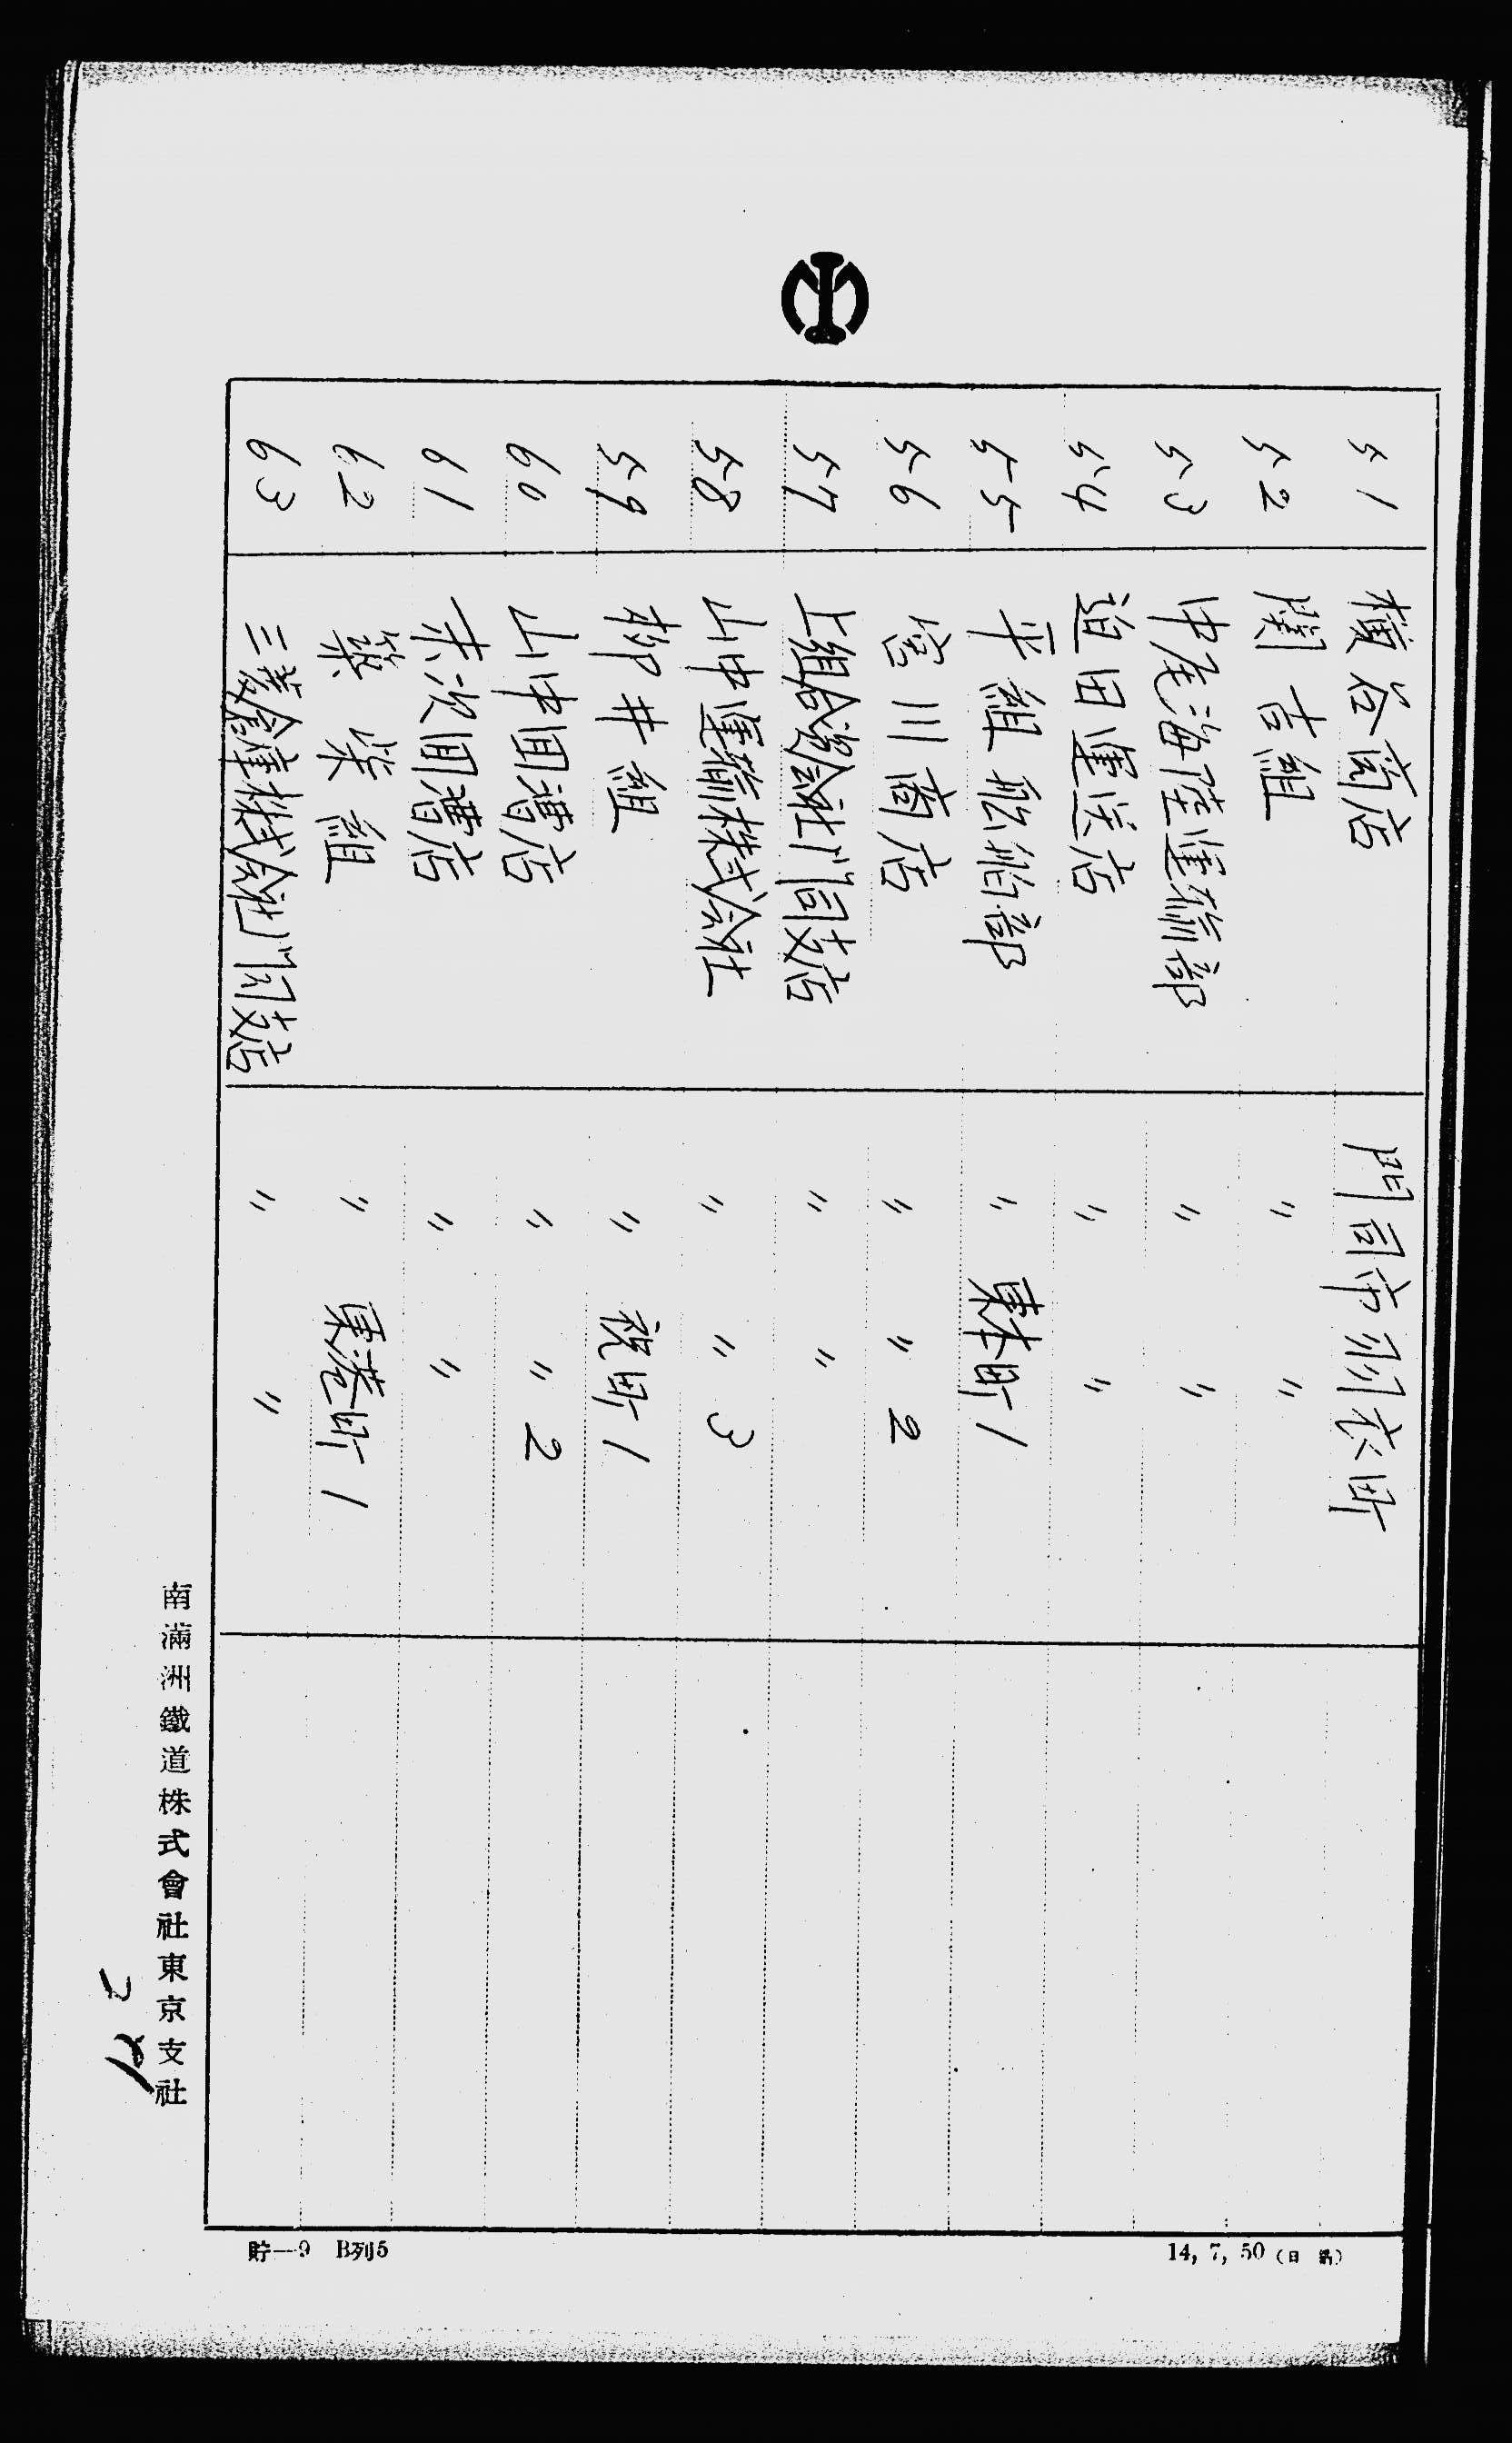 51 横谷商店 門司市羽衣町
52 関吉組 〃 〃
53 中尾海陸運輸部 〃 〃
54 迫田運送店 〃 〃
55 平組船舶部 〃 東本町1
56 宮川商店 〃 〃 2
57 上組合資会社門司支店 〃 〃
58 山中運輸株式会社 〃 〃 3
59 柳井組 〃 祝町1
60 山中回漕店 〃 〃 2
61 末次回漕店 〃 〃
62 築柴組 〃 東港町1
63 三菱倉庫株式会社門司支店 〃 〃
南滿洲鐵道株式會社東京支社
貯―9 B列5
14, 7, 50